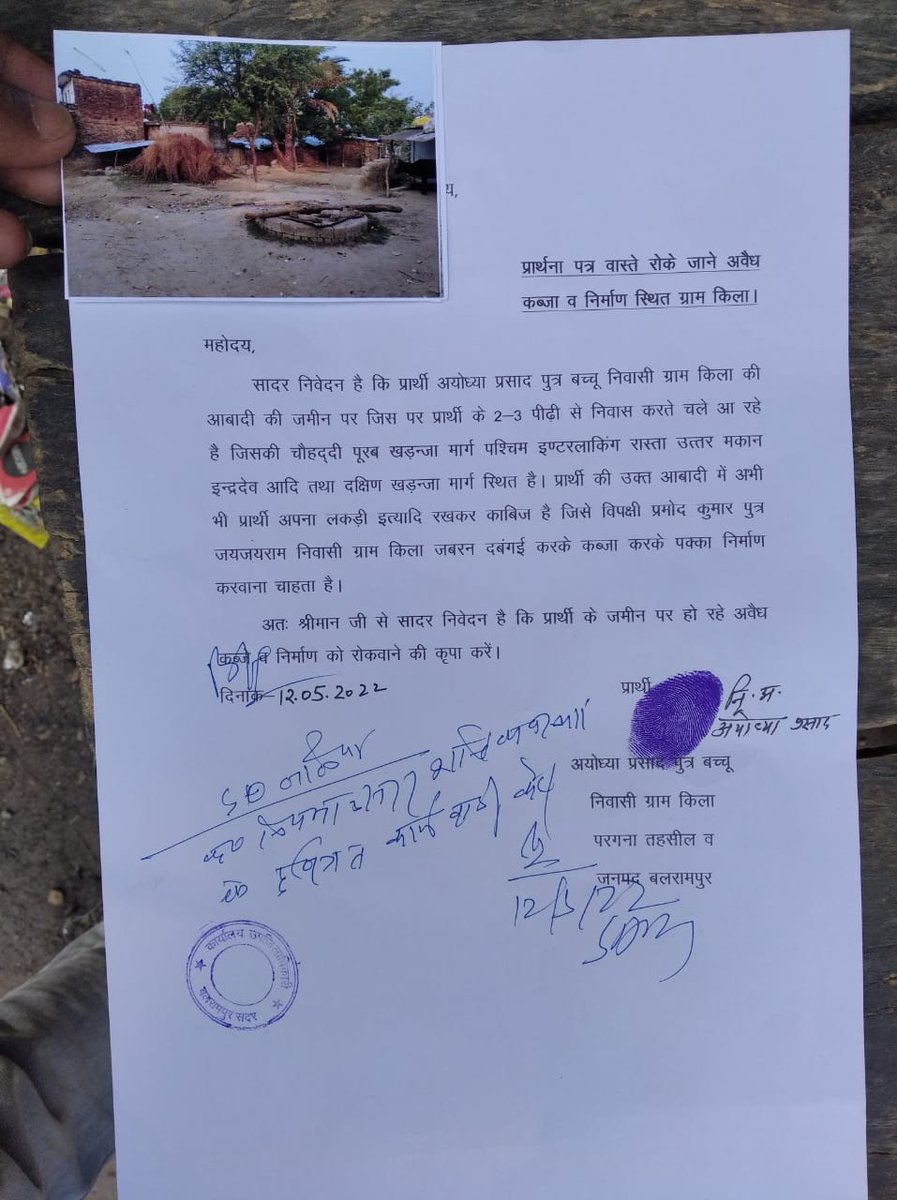 य,
प्रार्थना पत्र वास्ते रोके जाने अवैध
कब्जा व निर्माण स्थित ग्राम किला।
महोदय,
सादर निवेदन है कि प्रार्थी अयोध्या प्रसाद पुत्र बच्चू निवासी ग्राम किला की
आबादी की जमीन पर जिस पर प्रार्थी के 2–3 पीढ़ी से निवास करते चले आ रहे
है जिसकी चौहद्दी पूरब खड़न्जा मार्ग पश्चिम इण्टरलाकिंग रास्ता उत्तर मकान
इन्द्रदेव आदि तथा दक्षिण खड़न्जा मार्ग स्थित है। प्रार्थी की उक्त आबादी में अभी
भी प्रार्थी अपना लकड़ी इत्यादि रखकर काबिज है जिसे विपक्षी प्रमोद कुमार पुत्र
जयजयराम निवासी ग्राम किला जबरन दबंगई करके कब्जा करके पक्का निर्माण
करवाना चाहता है।
अतः श्रीमान जी से सादर निवेदन है कि प्रार्थी के जमीन पर हो रहे अवैध
कब्जे व निर्माण को रोकवाने की कृपा करें।
दिनांक–12.05.2022
प्रार्थी
नि.अ.
अयोध्या प्रसाद
अयोध्या प्रसाद पुत्र बच्चू
निवासी ग्राम किला
परगना तहसील व
जनपद बलरामपुर
12/5/22
SDM
कार्यालय उपजिलाधिकारी
बलरामपुर सदर